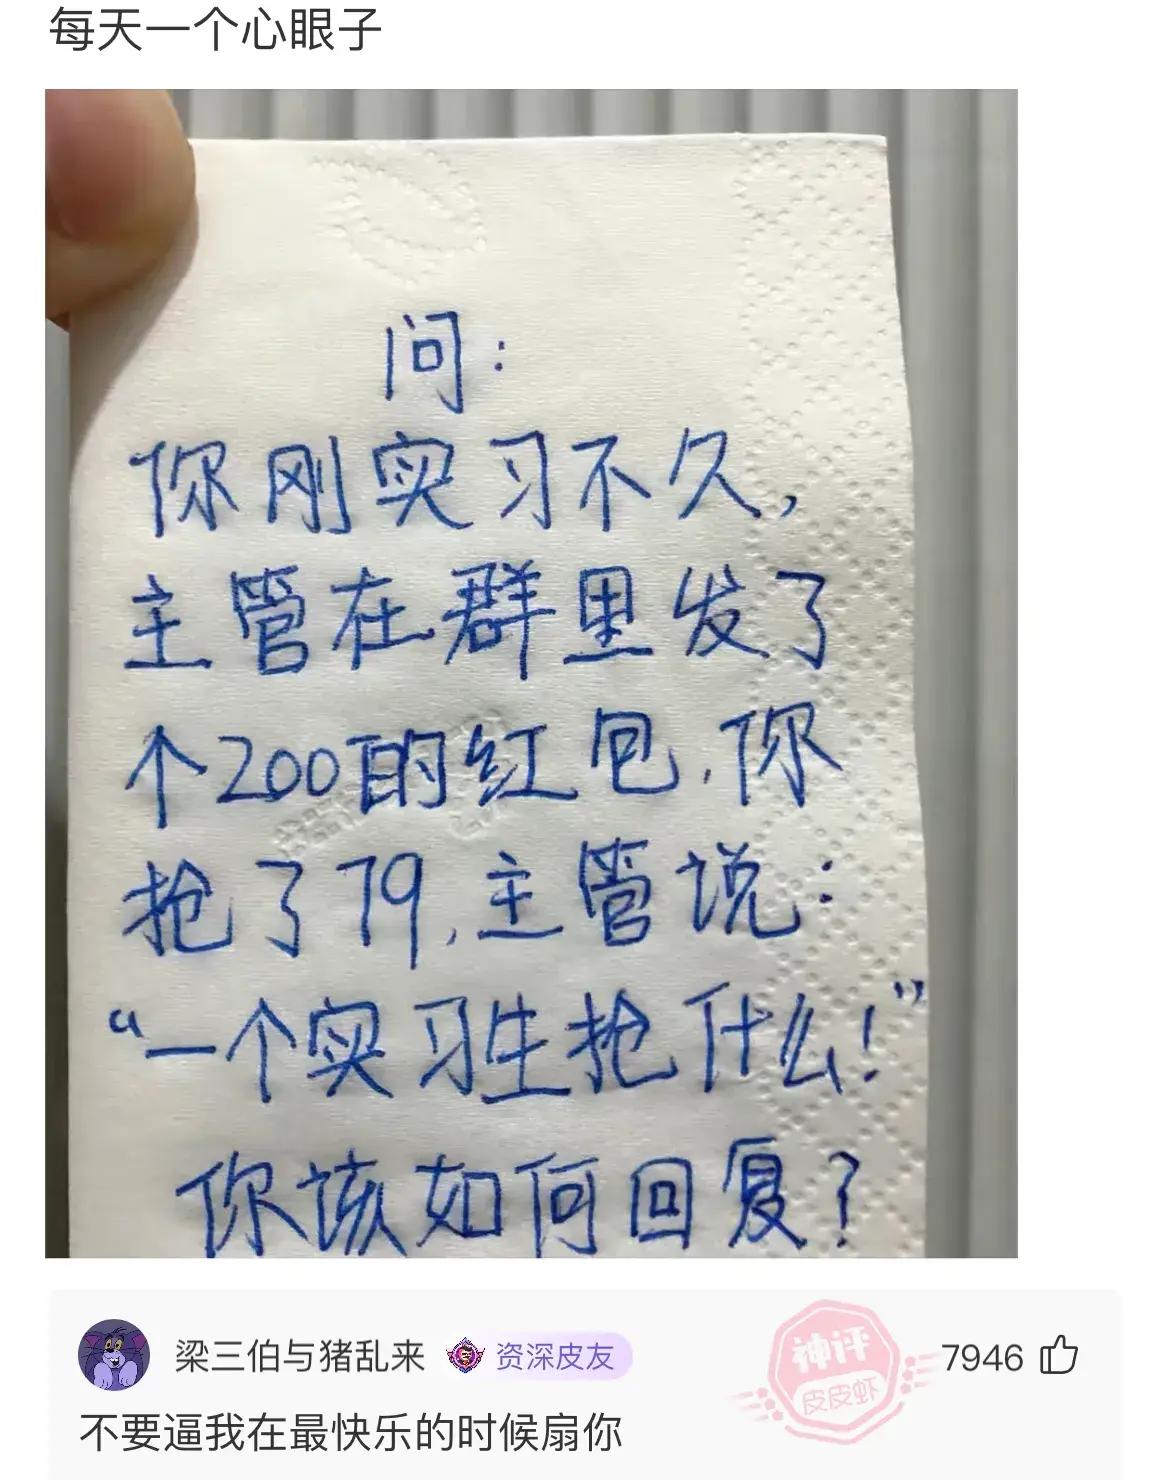 每天一个心眼子
问：
你刚实习不久，
主管在群里发了
个200的红包，你
抢了79，主管说：
“一个实习生抢什么！”
你该如何回复？
梁三伯与猪乱来 资深皮友 神评 皮皮虾 7946
不要逼我在最快乐的时候扇你